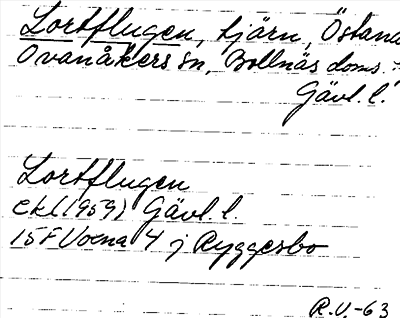 Lortflugen, tjärn, Östana
Ovanåkers sn, Bollnäs doms.
Gävl. l.
Lortflugen
Ekl (1959) Gävl. l.
15F Voxna 4 j Ryggesbo
R.V.-63